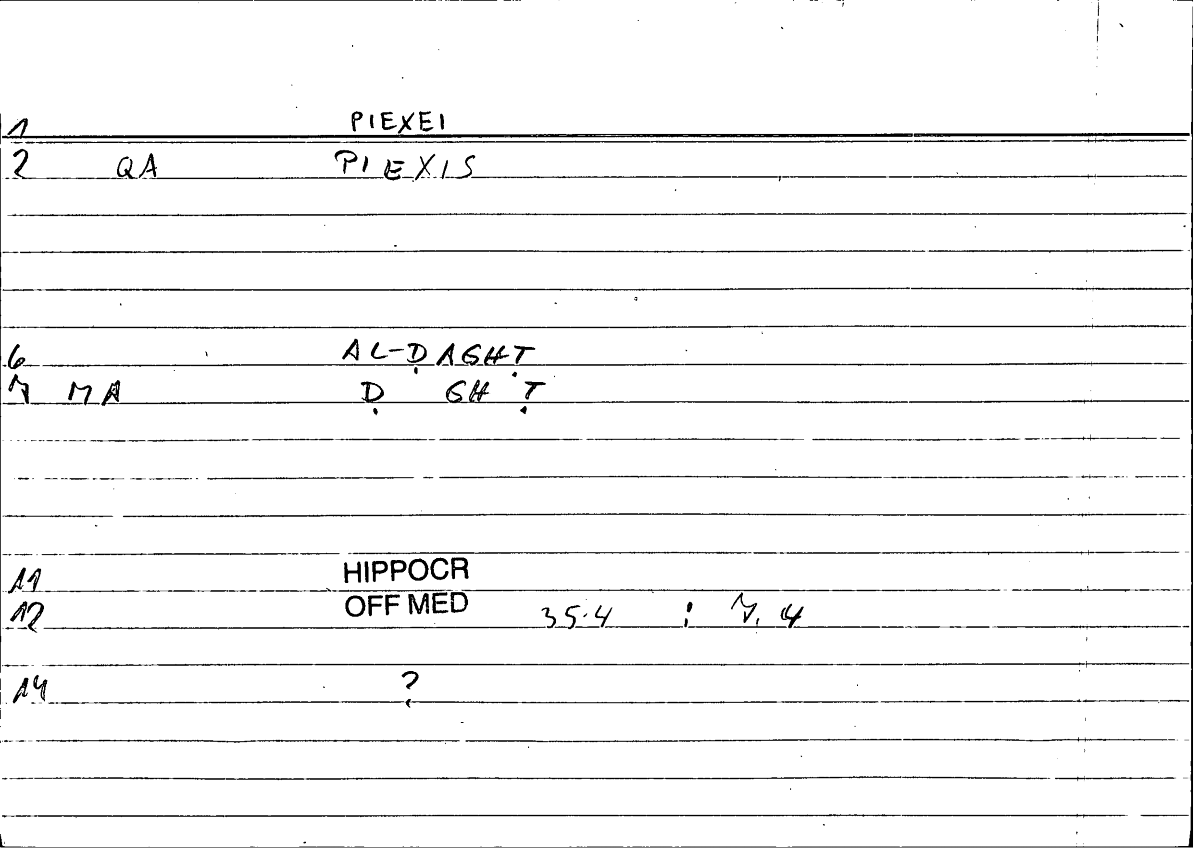 1 PIEXEI
2 QA PIEXIS
6 AL-ḌAGHṬ
7 MA Ḍ GH Ṭ
11 HIPPOCR
12 OFF MED 35.4 : 7.4
14 ?